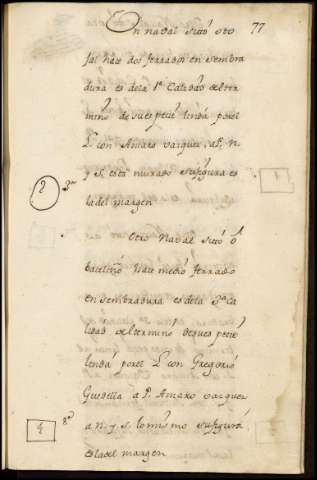 77
Un nabal sitto Oto
jal hace dos ferrados en sembra
dura es dela 1ª Calidad del ter
mino de su espeçie linda por el
L con Amaro vazquez, a P. N.
y S. esta murado su figura es
la del margen
2 3ª
Otro Nabal sitto ô
baceliño hace medio ferrado
en sembradura es de la 3ª Ca
lidad del termino desu espeçie
linda por el L con Gregorio
Guedella a P. Amaro vazquez
a N. y S. lo mismo su figura
es la del margen
4 8ª